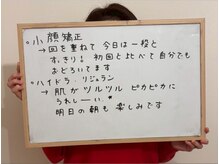 ◦小顔矯正
→回を重ねて今日は一段と
すっきり! 初回と比べて自分でも
おどろいてます
◦ハイドラ リジュラン
→肌がツルツル ピカピカに
うれしーい
明日の朝も楽しみです